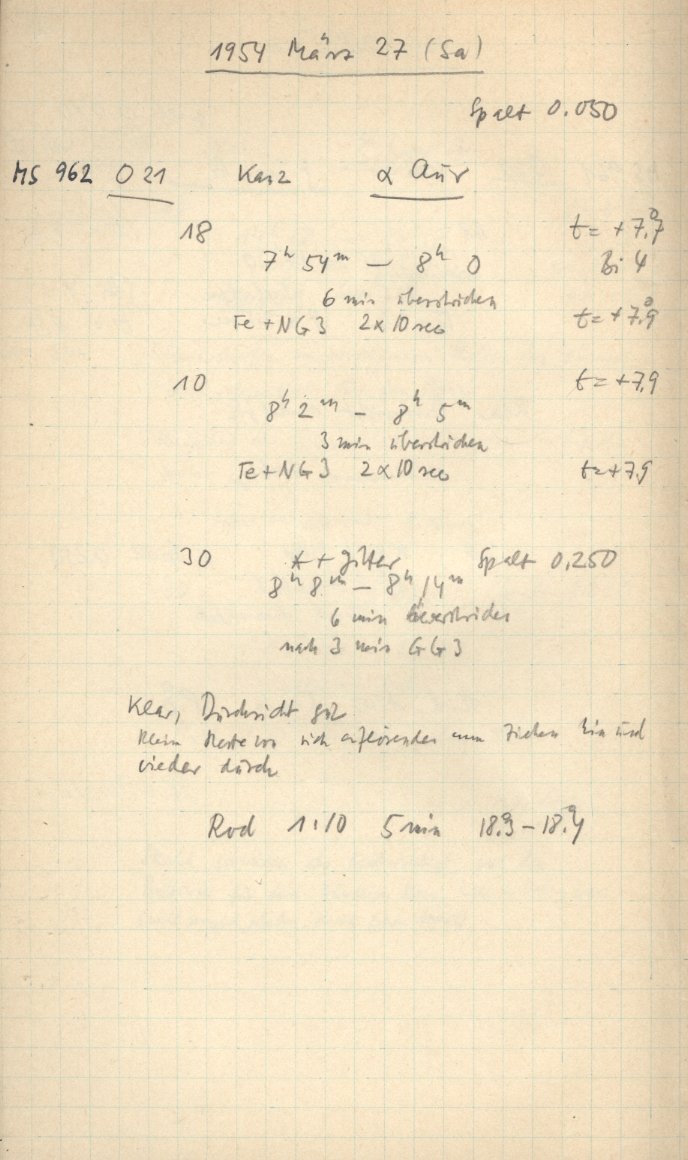 1954 März 27 (Sa)
Spalt 0.050
MS 962 O 21 α Aur
18 t = +7°.7
7h 54m — 8h 0 Bi 4
6 min überstrichen
Fe + NG 3 2 x 10 sec t = +7°.9
10 t = +7.9
8h 2m — 8h 5m
3 min überstrichen
Fe + NG 3 2 x 10 sec t = +7.9
30 * + Gitter Spalt 0.250
8h 8m — 8h 14m
6 min überstrichen
nach 3 min GG 3
Klar, Durchsicht gut
Reste von sich auflösenden ziehen hin und
wieder durch
Rod 1:10 5 min 18°.3 – 18°.4